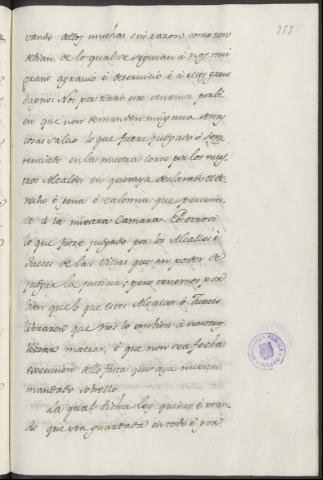 253
vando dellos muchas sin razon como non
debian, de lo qual se seguian á nos mui
grant agravio é deservicio é á ellos grant
dagno: Nos por tirar esto tenemos por bi-
en que non demanden ninguna destas
cosas salvo lo que fuere judgado ó sen-
tenciado en la nuestra Corte por los nues-
tros Alcaldes en que vaya declarado el de-
recho é pena ó calonna que pertenes-
ce á la nuestra Camara. Et otrosi
lo que fuere judgado por los Alcalles é
Jueces de las Villas que an poder de
judgar la justicia; pero tenemos por
bien que lo que estos Alcalles é Jueces
libraren que nos lo embien á nos
librar é que non sea fecha
execucion dello fasta que aya nuestro
mandado sobrello.
La qual dicha ley quiero é man-
do que sea guardada en todo é por
BIBLIOTECA PUBLICA
TOLEDO